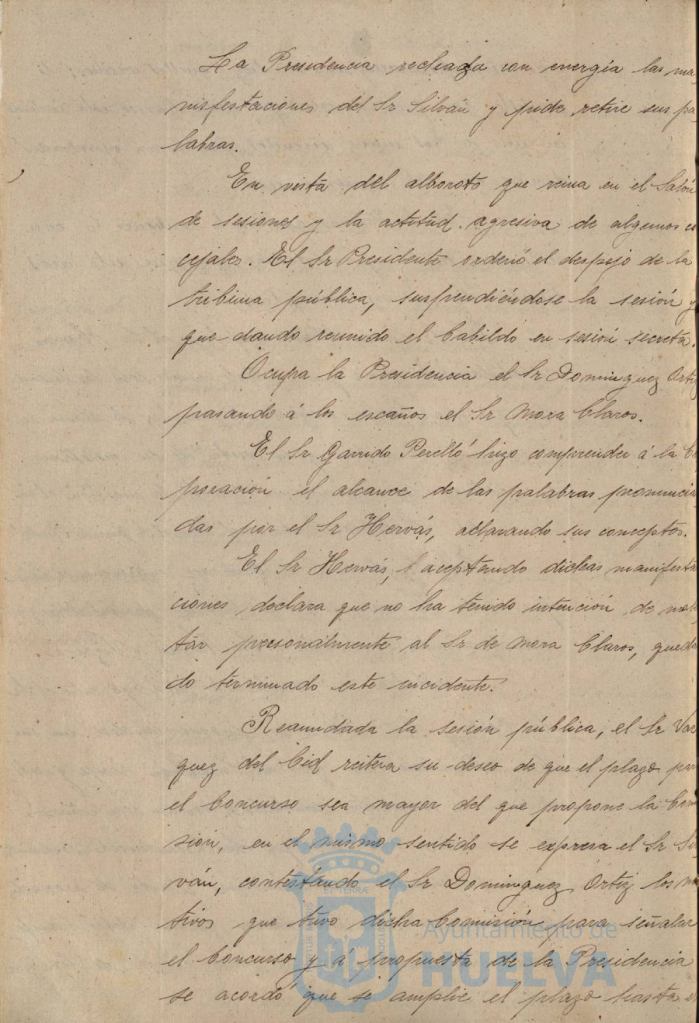 La Presidencia rechaza con energía las ma
nifestaciones del Sr Silván y pide retire sus pa
labras.
En vista del alboroto que reina en el Salón
de sesiones y la actitud agresiva de algunos co
cejales. El Sr Presidente ordenó el despejo de la
tribuna pública, suspendiéndose la sesión y
quedando reunido el Cabildo en sesión secreta.
Ocupa la Presidencia el Sr Dominguez Ortiz
pasando á los escaños el Sr Mora Claros.
El Sr Garrido Perelló hizo comprender á la Co
poración el alcance de las palabras pronuncia
das por el Sr Hervás, aclarando sus conceptos.
El Sr Hervás, aceptando dichas manifesta
ciones, declara que no ha tenido intención de moles
tar personalmente al Sr de Mora Claros, quedan
do terminado este incidente.
Reanudada la sesión pública, el Sr Vaz
quez del Cid reitera su deseo de que el plazo para
el Concurso sea mayor del que propone la Comi
sión, en el mismo sentido se expresa el Sr Sil
ván, contestándo el Sr Dominguez Ortiz los mo
tivos que tuvo dicha Comisión para señalar
el Concurso y á propuesta de la Presidencia
se acordó que se amplíe el plazo hasta
Ayuntamiento de
HUELVA